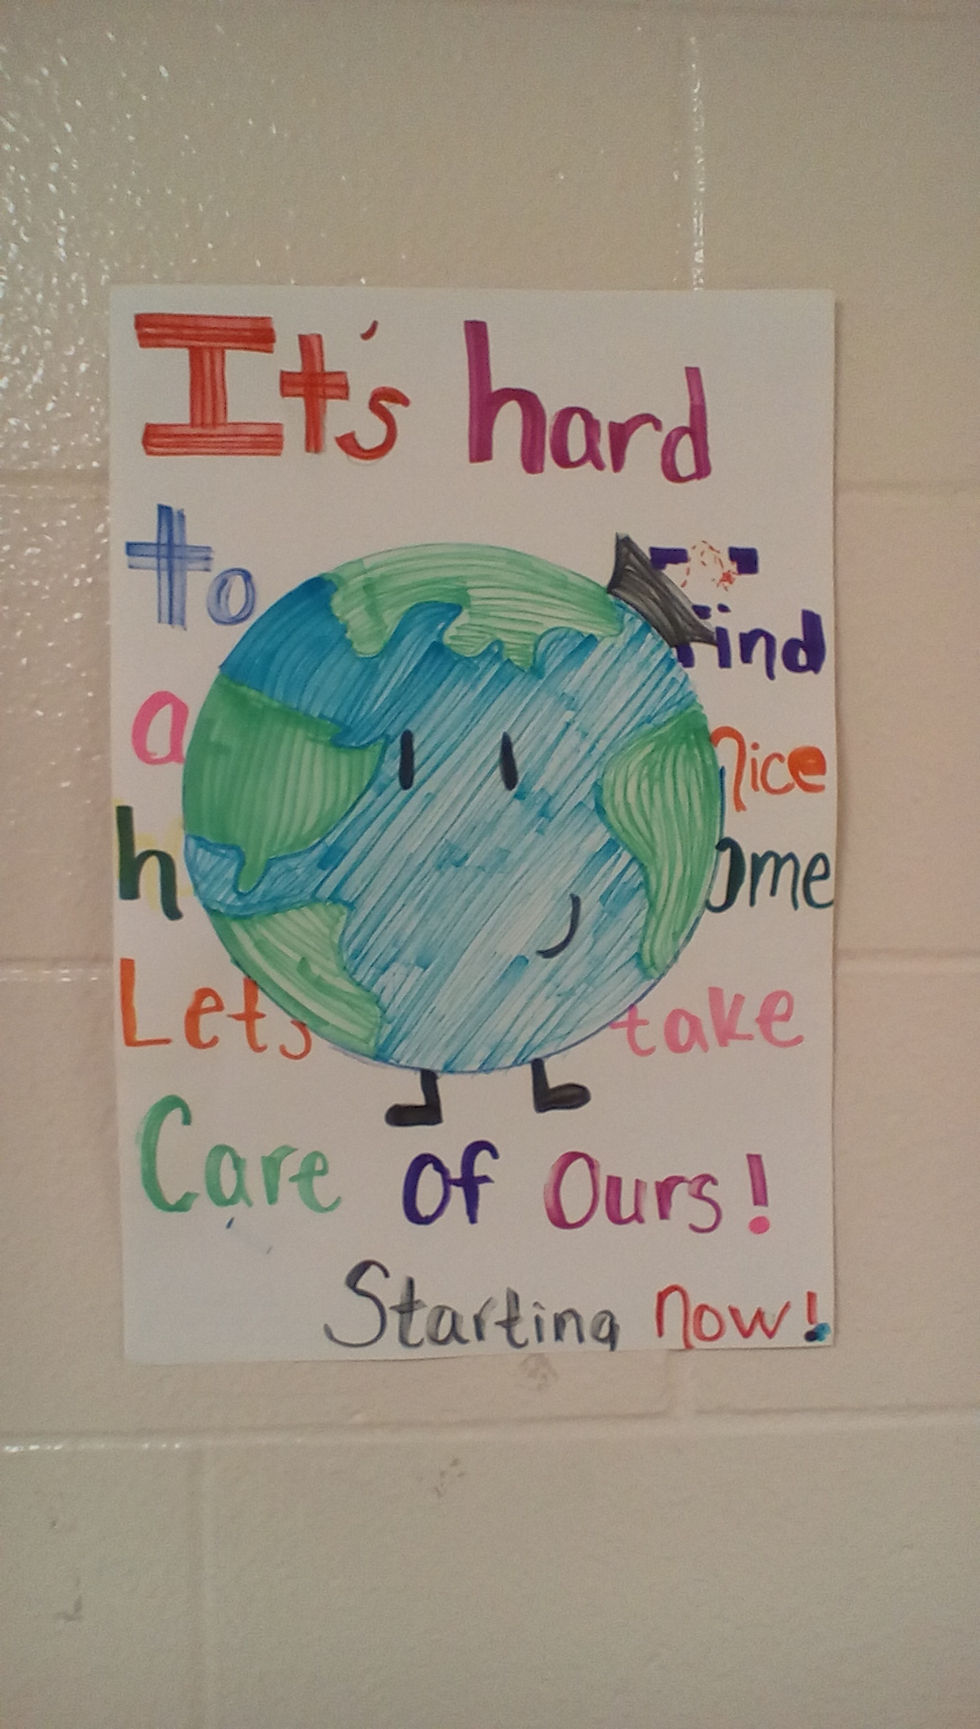 It's hard
to find
a nice
home
Lets take
Care of Ours!
Starting now!